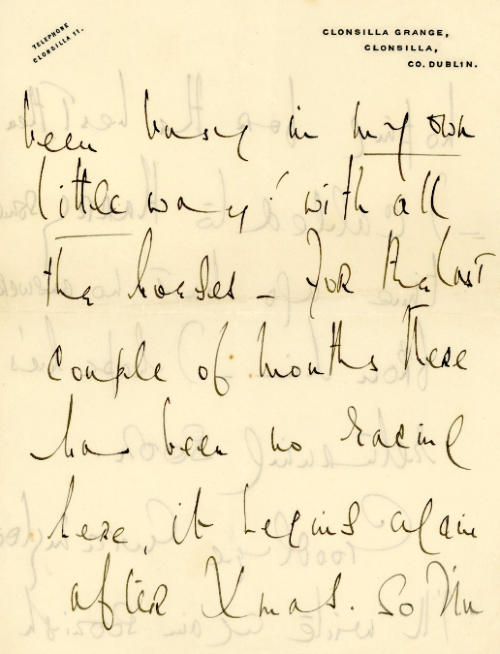 TELEPHONE
CLONSILLA 11.
CLONSILLA GRANGE,
CLONSILLA,
CO. DUBLIN.
been busy in my own
little way! with all
the horses - for the last
couple of months there
has been no racing
here, it begins again
after Xmas. So I'm